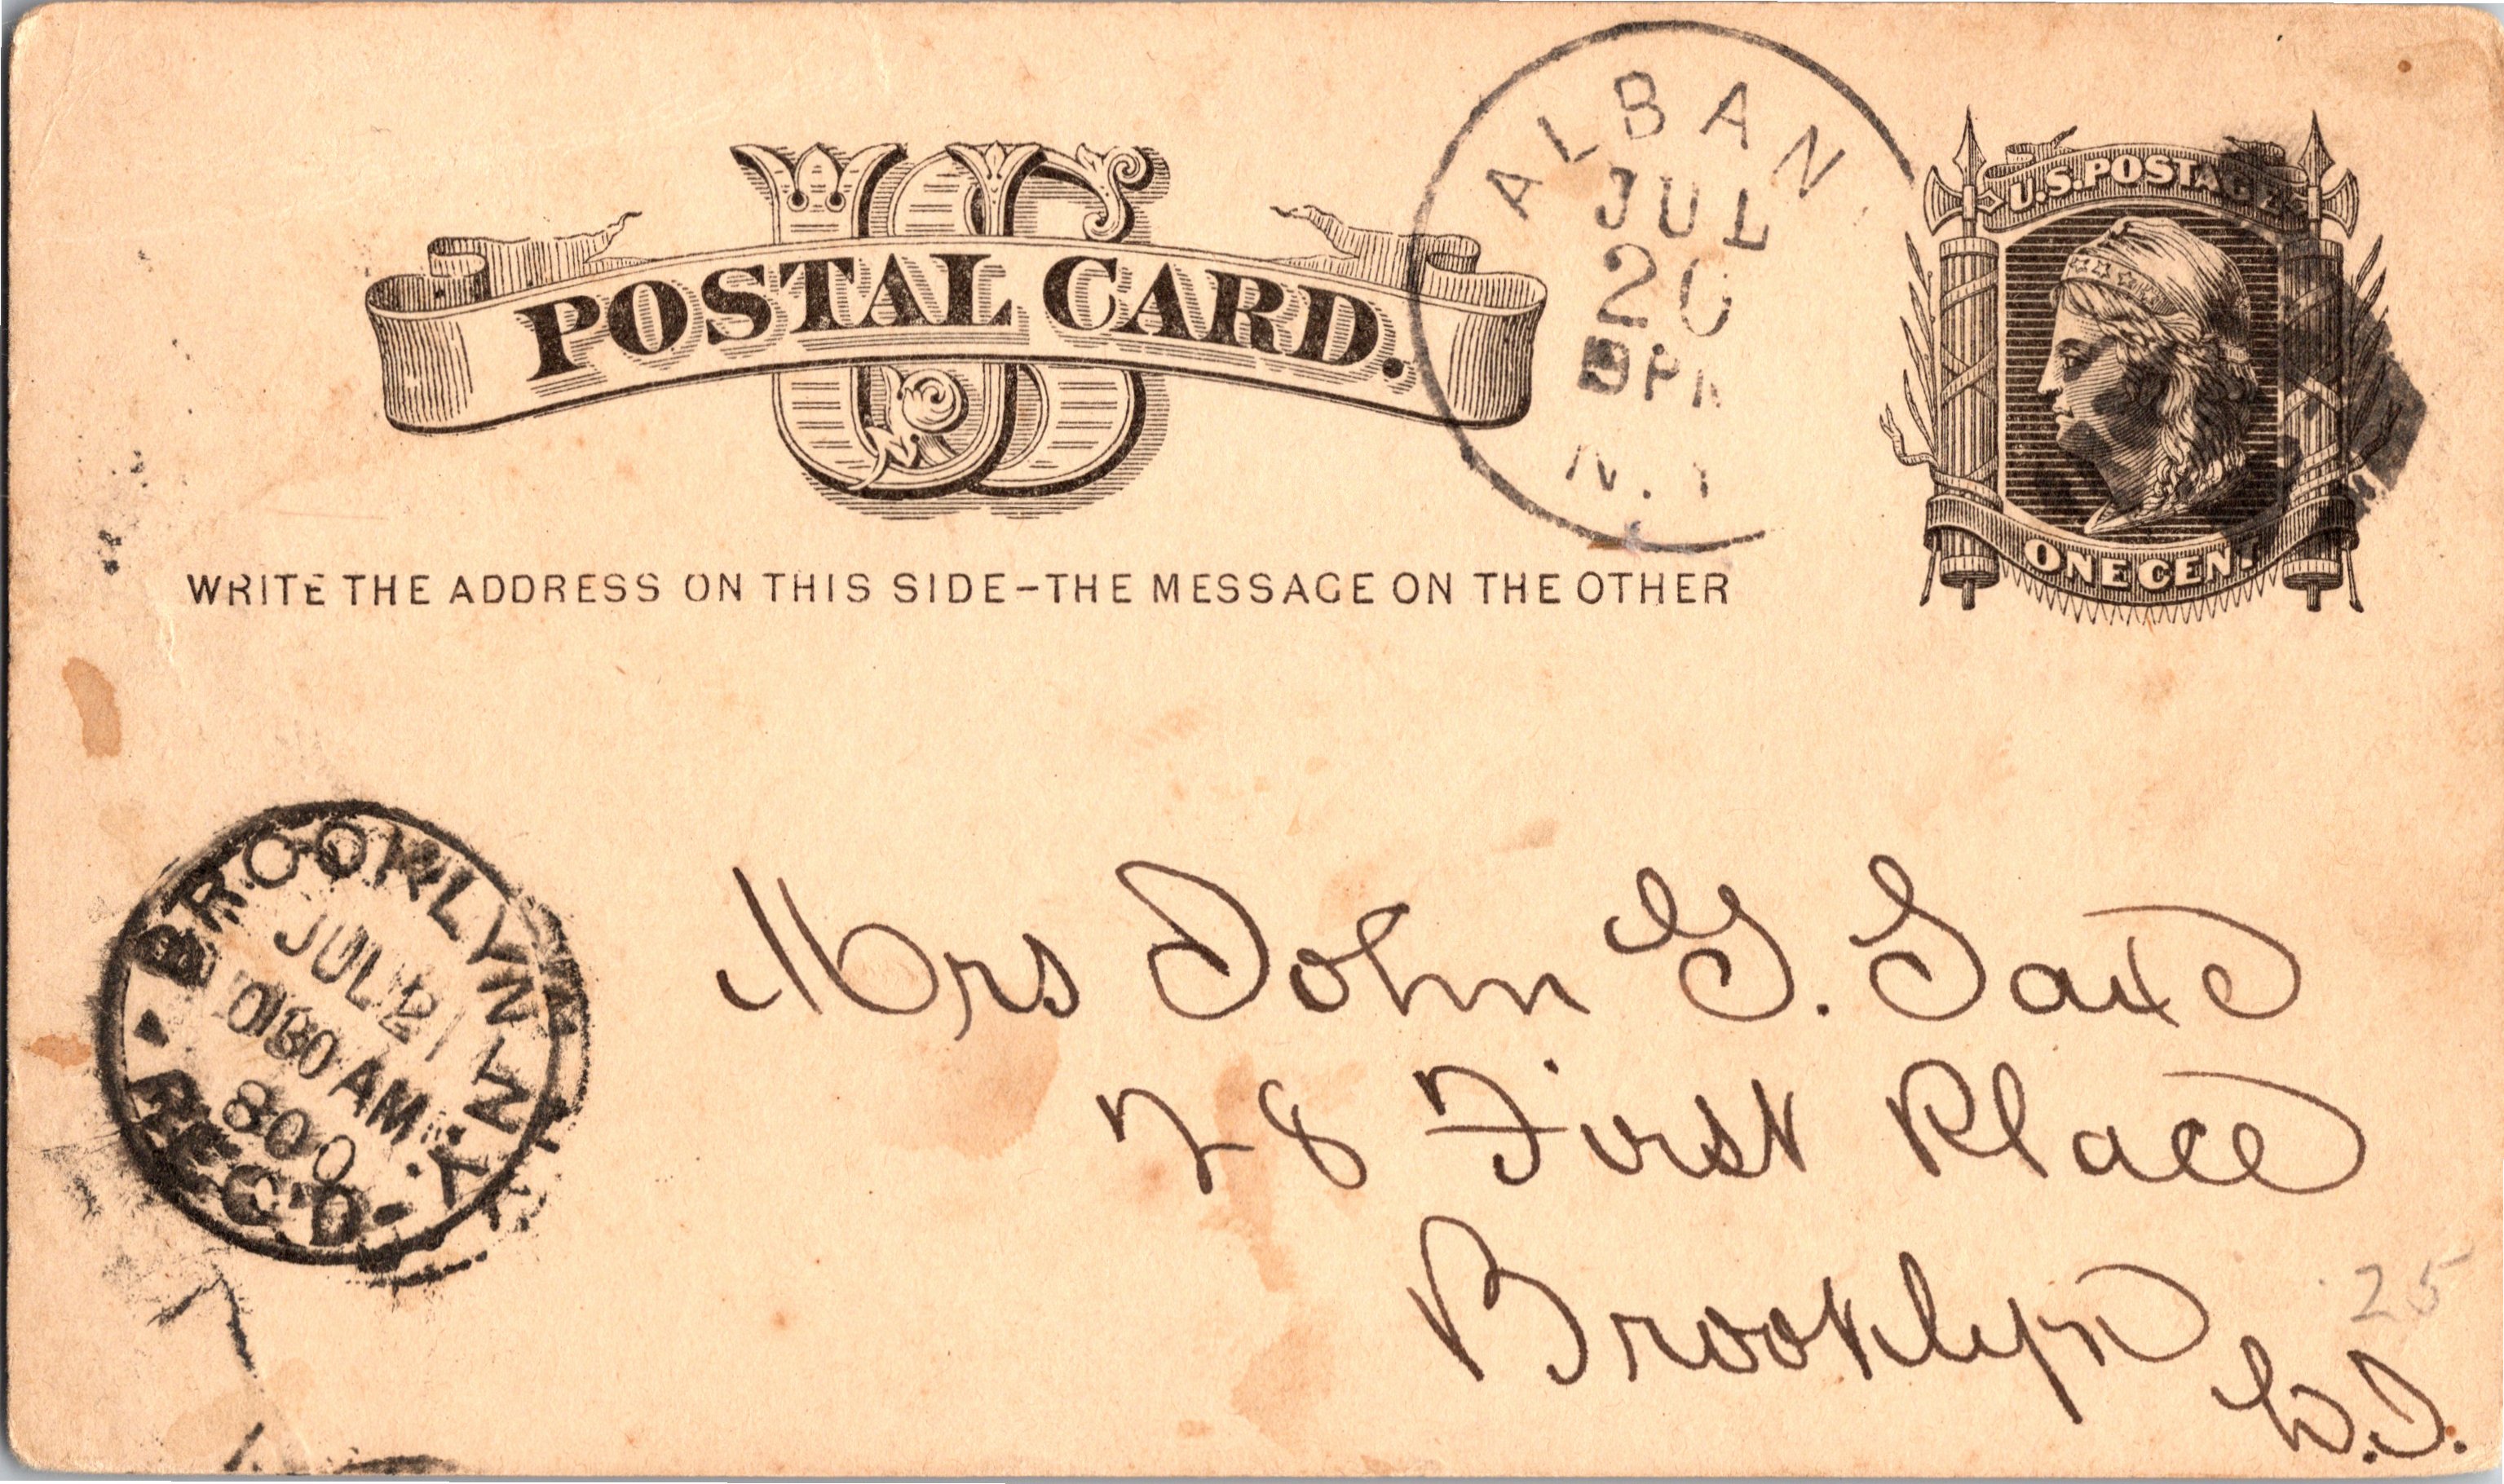 US
POSTAL CARD.
ALBAN
JUL
20
PM
N.Y
U.S. POSTAGE
ONE CENT
WRITE THE ADDRESS ON THIS SIDE-THE MESSAGE ON THE OTHER
BROOKLYN N.Y.
JUL 21
AM
REC'D.
Mrs John G. Saxe
28 First Place
Brooklyn
25
L.I.